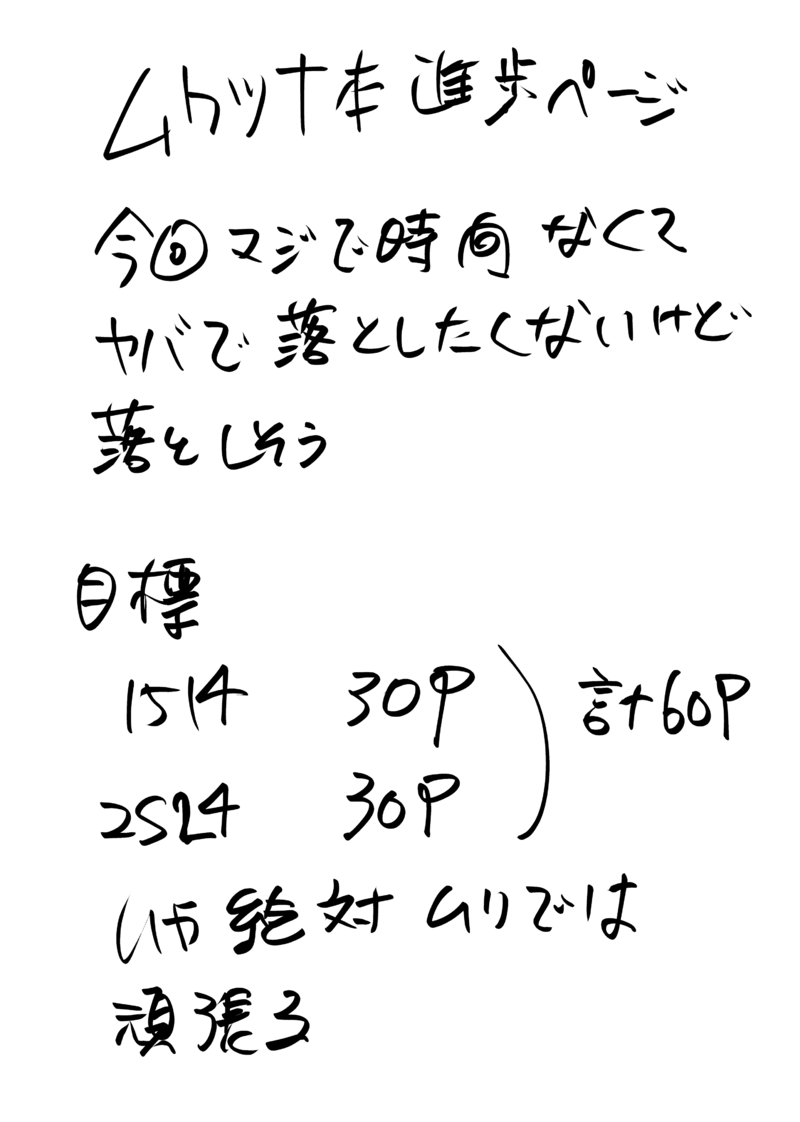 ムカツナ本 進歩ページ
今回マジで時間なくて
ヤバで落としたくないけど
落としそう
目標
1514 30P
2524 30P
計60P
いや絶対ムリでは
頑張る